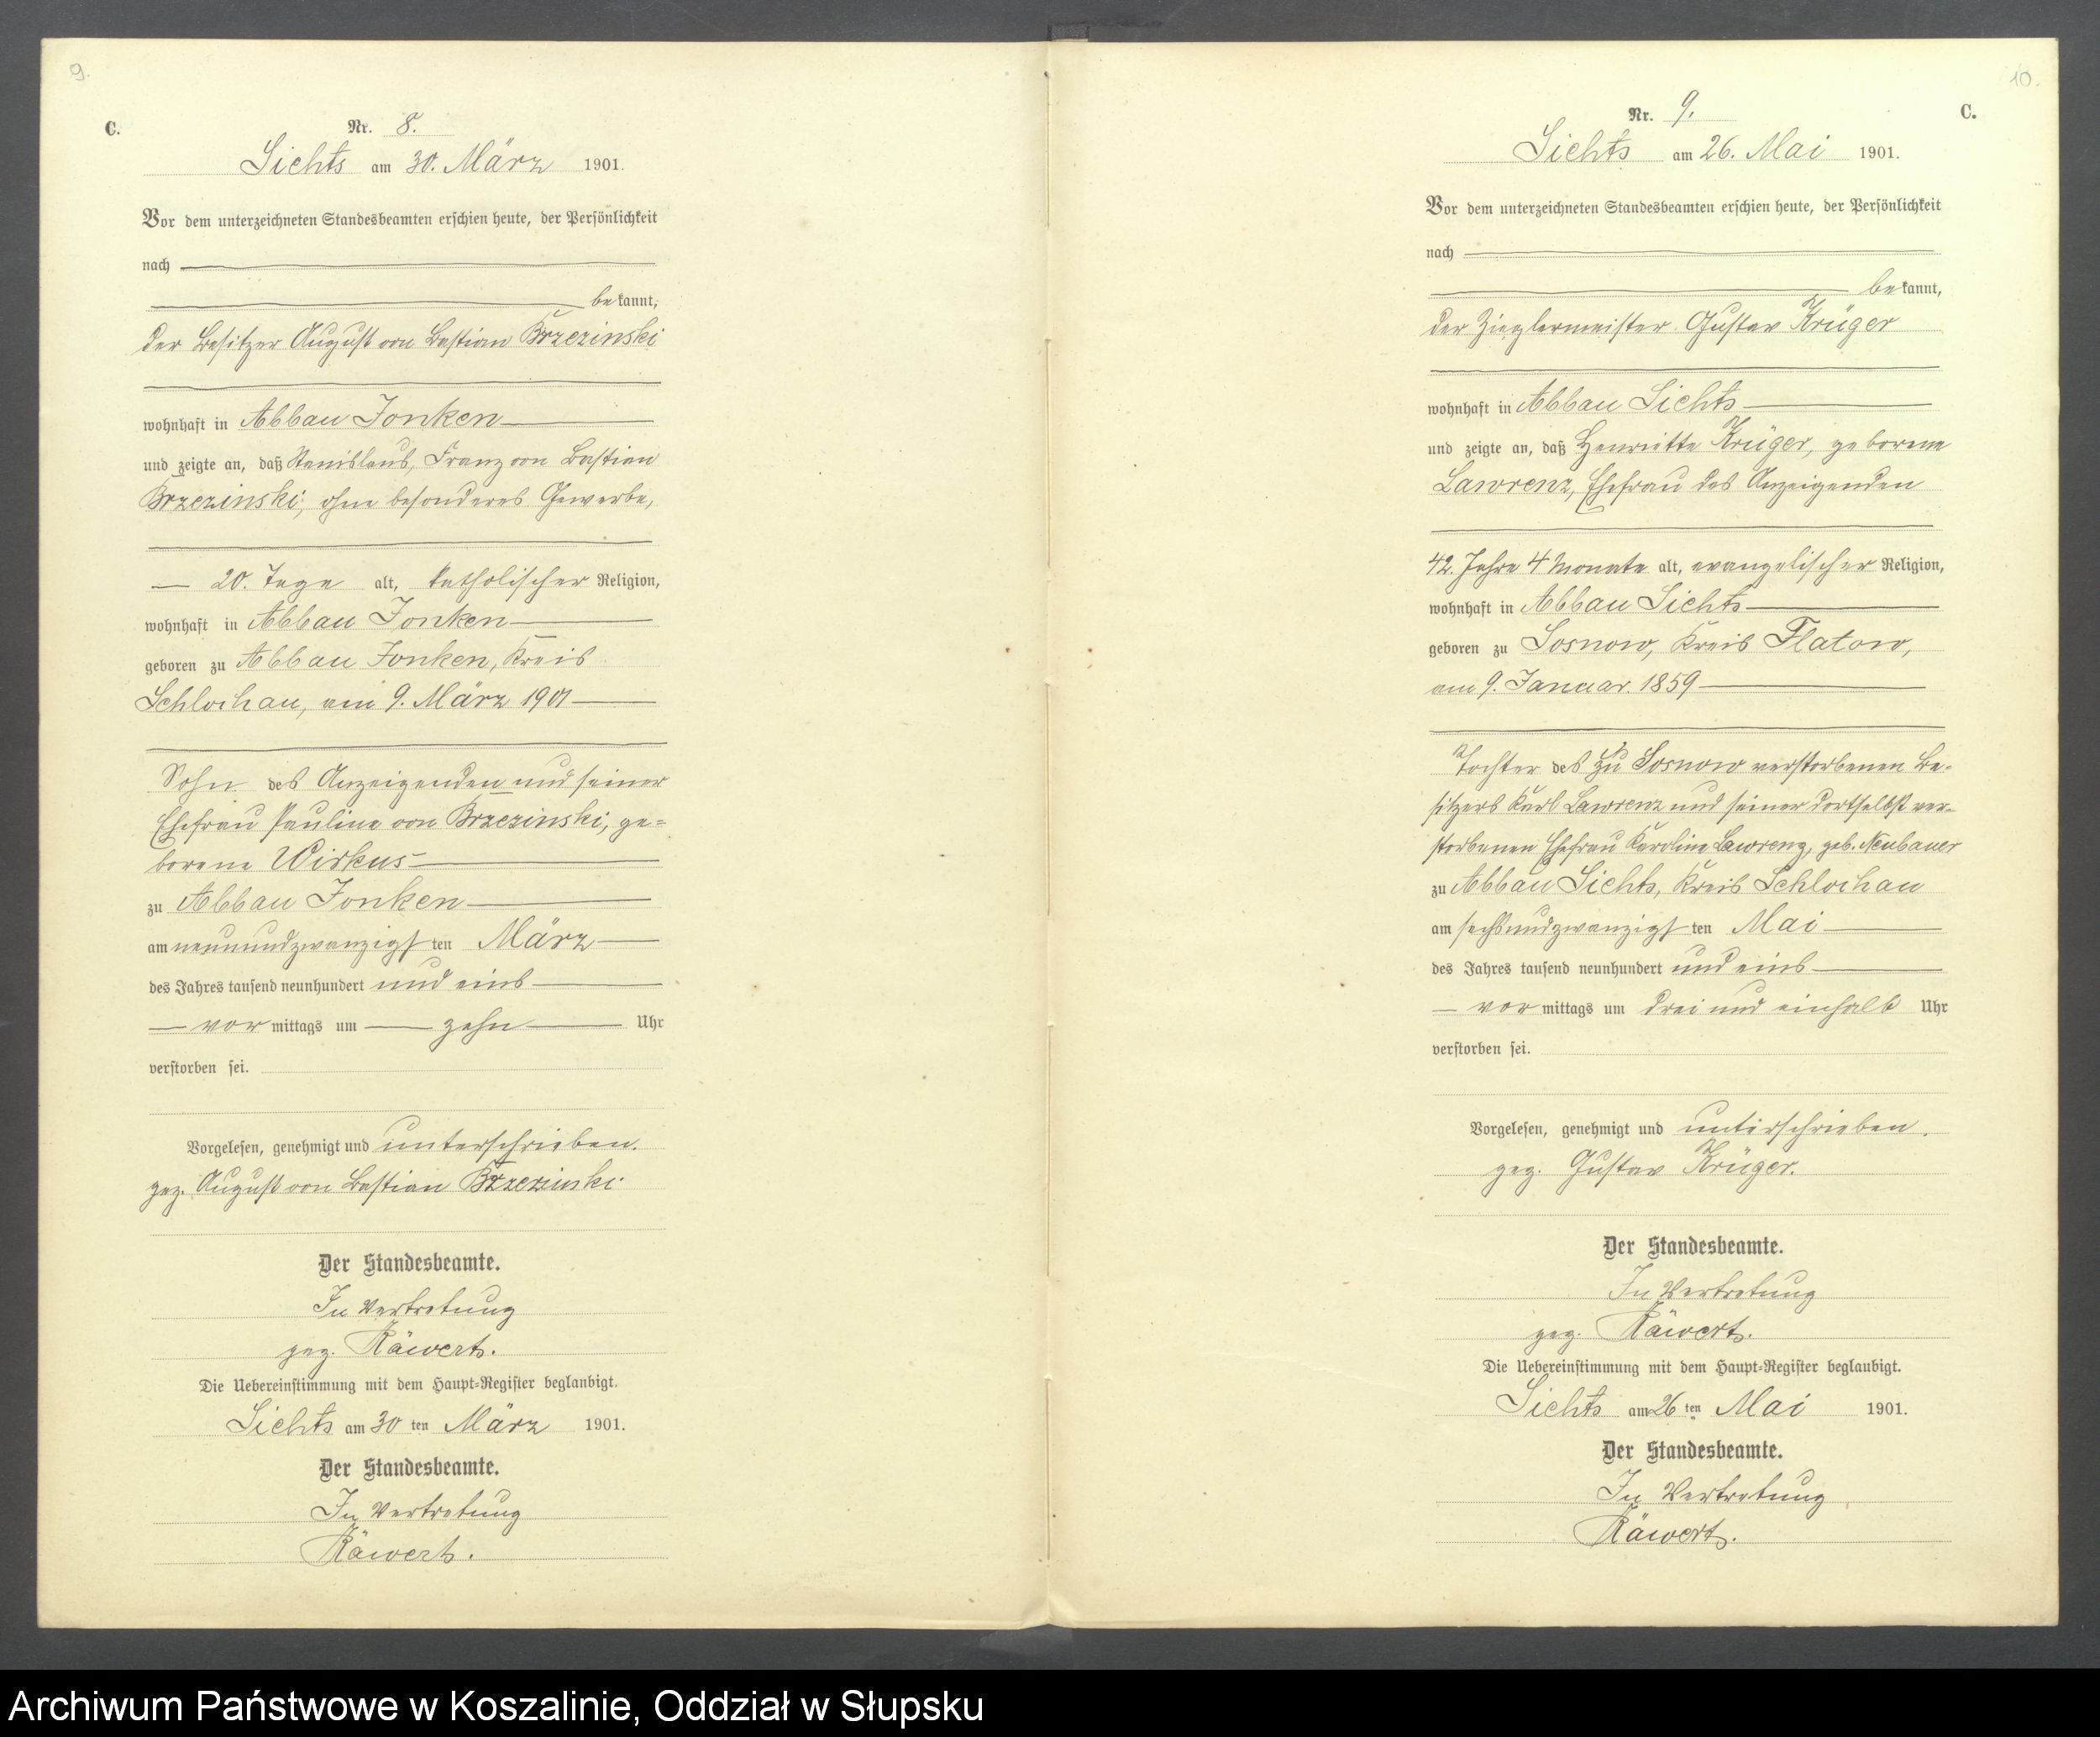 9.
C.
Nr. 8.
Lichts am 30. März 1901.
Vor dem unterzeichneten Standesbeamten erschien heute, der Persönlichkeit
nach
bekannt,
der Besitzer August von Bastian Brzezinski
wohnhaft in Abbau Zonken
und zeigte an, daß Stanislaus, Franz von Bastian
Brzezinski, ohne besonderes Gewerbe,
20. Tage alt, katholischer Religion,
wohnhaft in Abbau Zonken
geboren zu Abbau Zonken, Kreis
Schlochau, am 9. März 1901
Sohn des Anzeigenden und seiner
Ehefrau Pauline von Brzezinski, ge=
borene Wirkus
zu Abbau Zonken
am neunundzwanzigsten März
des Jahres tausend neunhundert und eins
vormittags um zehn Uhr
verstorben sei.
Vorgelesen, genehmigt und unterschrieben.
gez. August von Bastian Brzezinski
Der Standesbeamte.
In Vertretung
gez. Räwerts.
Die Uebereinstimmung mit dem Haupt=Register beglaubigt.
Lichts am 30 ten März 1901.
Der Standesbeamte.
In Vertretung
Räwerts.
10.
C.
Nr. 9.
Lichts am 26. Mai 1901.
Vor dem unterzeichneten Standesbeamten erschien heute, der Persönlichkeit
nach
bekannt,
der Zieglermeister Gustav Krüger
wohnhaft in Abbau Lichts
und zeigte an, daß Henriette Krüger, geborene
Lawrenz, Ehefrau des Anzeigenden
42. Jahre 4 Monate alt, evangelischer Religion,
wohnhaft in Abbau Lichts
geboren zu Sosnow, Kreis Flatow,
am 9. Januar. 1859
Tochter des zu Sosnow verstorbenen Be-
sitzers Karl Lawrenz und seiner dortselbst ver-
storbenen Ehefrau Karoline Lawrenz, geb. Neubauer
zu Abbau Lichts, Kreis Schlochau
am sechsundzwanzigsten Mai
des Jahres tausend neunhundert und eins
vormittags um drei und einhalb Uhr
verstorben sei.
Vorgelesen, genehmigt und unterschrieben.
gez. Gustav Krüger.
Der Standesbeamte.
In Vertretung
gez. Räwerts.
Die Uebereinstimmung mit dem Haupt=Register beglaubigt.
Lichts am 26 ten Mai 1901.
Der Standesbeamte.
In Vertretung
Räwerts.
Archiwum Państwowe w Koszalinie, Oddział w Słupsku